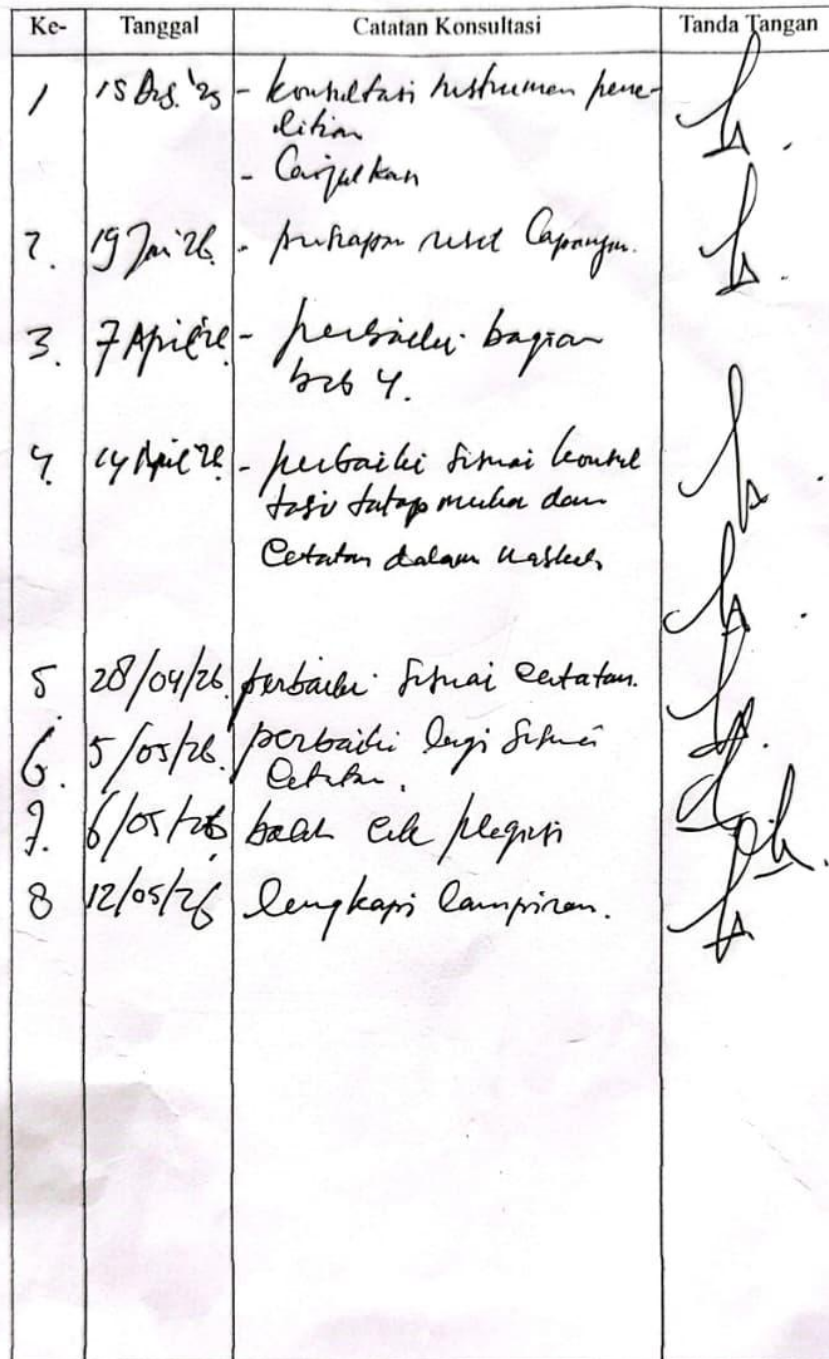 Ke- Tanggal Catatan Konsultasi Tanda Tangan
1 15 Des. '25 - konsultasi instrumen pene-
litian
- Lanjutkan
2. 19 Jan '26 - riset Lapangan.
3. 7 April '26 - perbaiki bagian
bab 4.
4. 14 April '26 - perbaiki sesuai konsul
tasi tatap muka dan
Catatan dalam naskah
5. 28/04/26. perbaiki sesuai catatan.
6. 5/05/26. perbaiki lagi sesuai
Catatan.
7. 6/05/26 cek plagiasi
8 12/05/26 lengkapi lampiran.